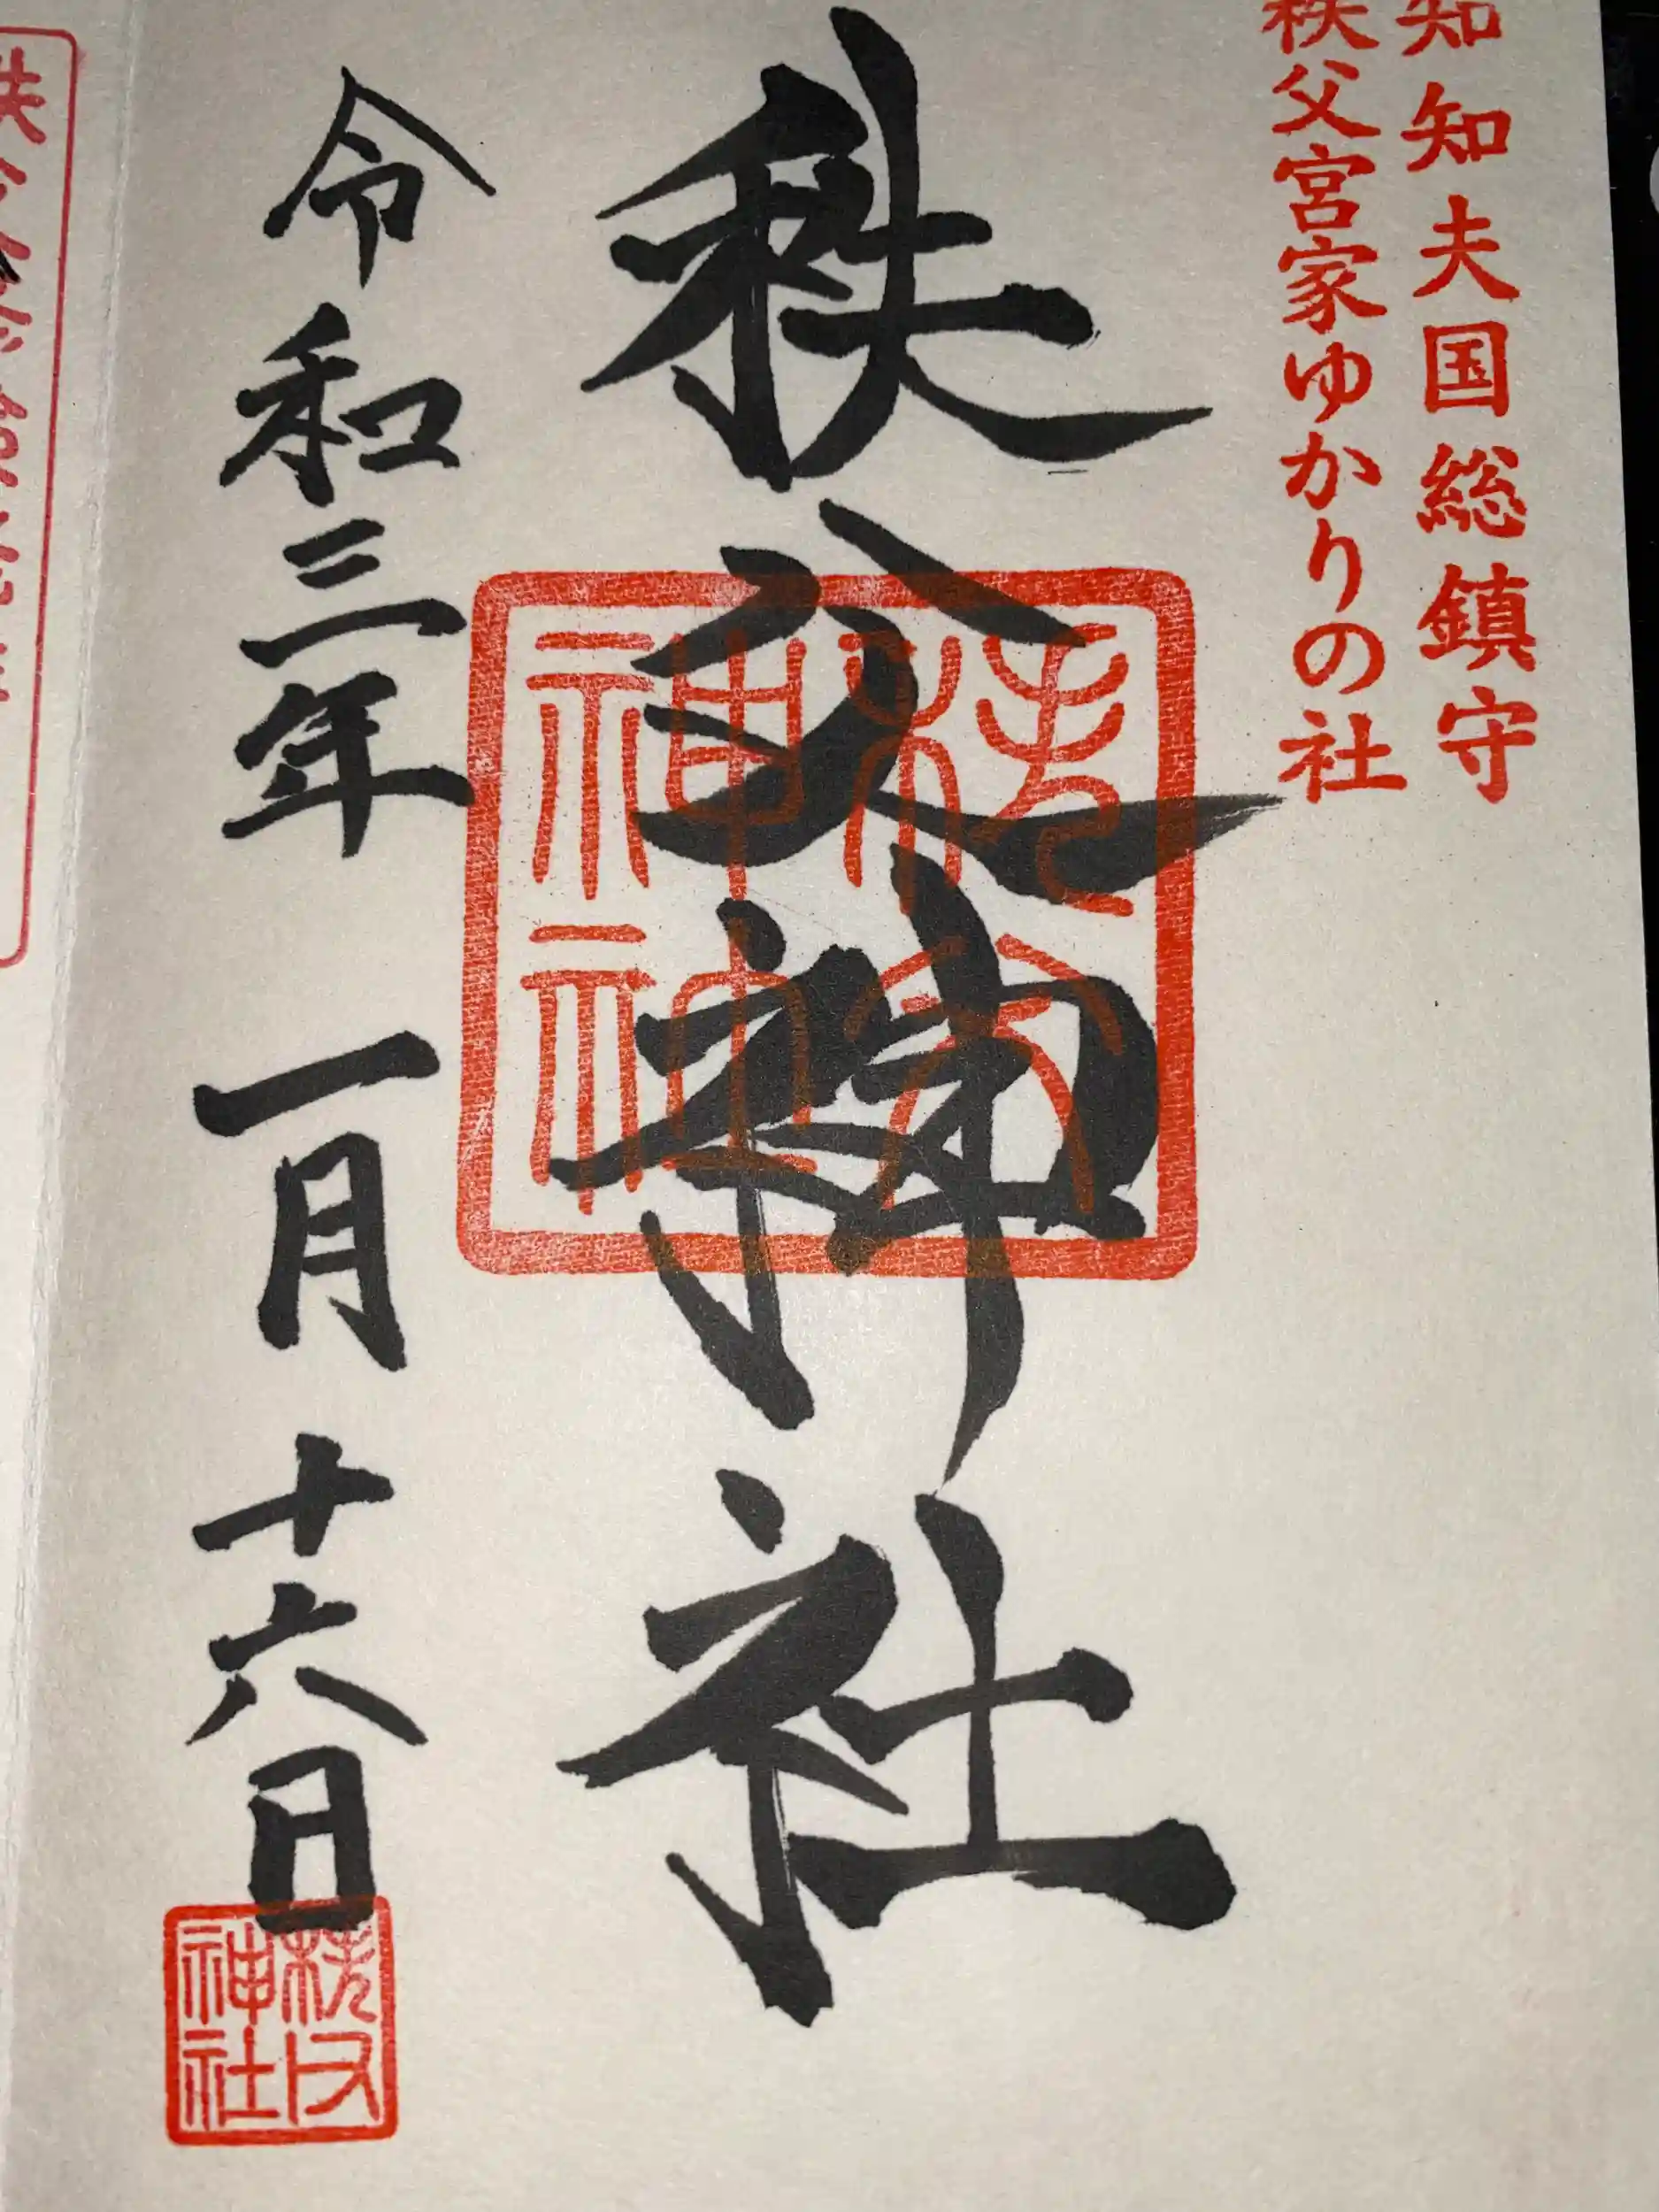 知知夫国総鎮守
秩父宮家ゆかりの社
秩父神社
秩父神社
令和三年 一月十六日
秩父神社